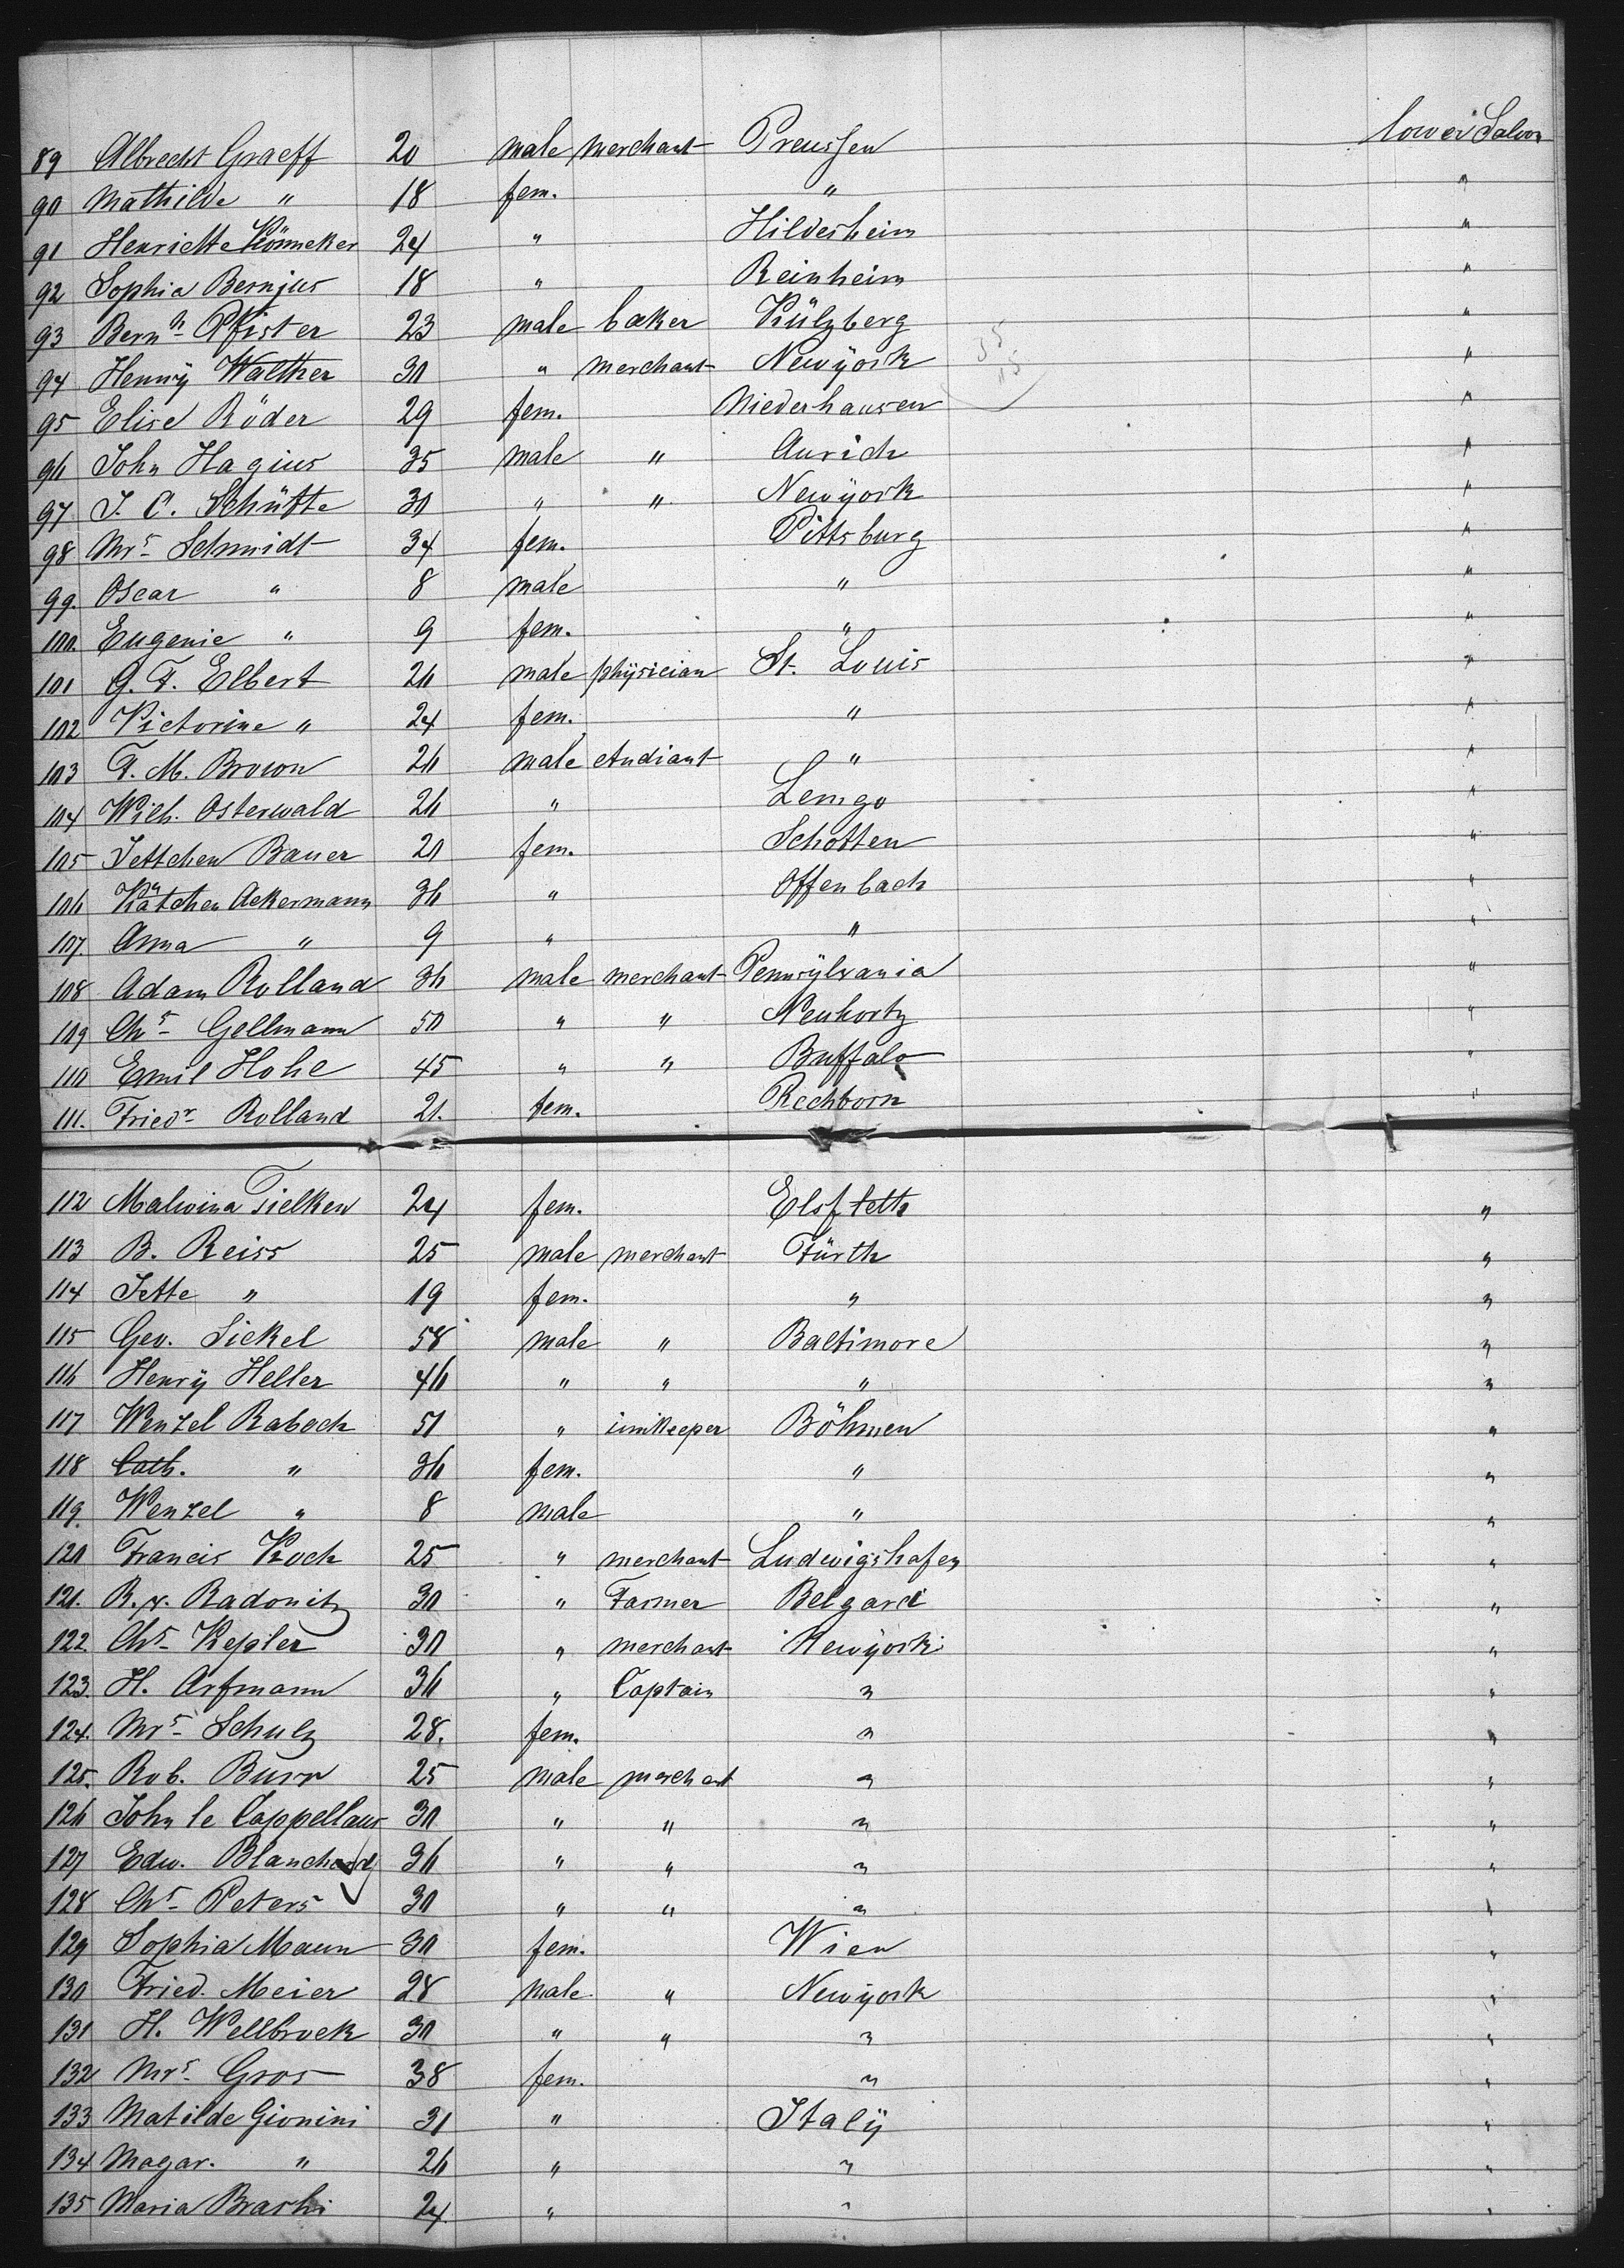 lower Saloon
89 Albrecht Graeff 20 male merchant Preussen
90 Mathilde " 18 fem. " "
91 Henriette Könneker 24 " Hildesheim "
92 Sophia Bernjus 18 " Reinheim "
93 Bernh Pfister 23 male baker Külzberg "
94 Henry Walther 30 " merchant Newÿork "
95 Elise Röder 29 fem. Niederhausen "
96 John Hagius 35 male " Aurich "
97 J. C. Schütte 30 " " Newÿork "
98 Mrs Schmidt 34 fem. Pittsburg "
99. Oscar " 8 male " "
100. Eugenie " 9 fem. " "
101 G. F. Elbert 26 male phÿsician St. Louis "
102 Victorine " 24 fem. " "
103 F. M. Brown 26 male etudiant " "
104 Wilh. Osterwald 26 " Lemgo "
105 Jettchen Bauer 20 fem. Schotten "
106 Kätchen Ackermann 36 " Offenbach "
107. Anna " 9 " " "
108 Adam Rolland 36 male merchant Pennsÿlvania "
109 Chs Gellmann 50 " " Neuhortz "
110 Emil Hohe 45 " " Buffalo "
111. Friedr Rolland 21. fem. Rechborn "
112 Malwina Tielken 24 fem. Elsfleth "
113 B. Reiss 25 male merchant Fürth "
114 Jette " 19 fem. " "
115 Geo. Sickel 58 male " Baltimore "
116 Henrÿ Heller 46 " " " "
117 Wenzel Raboch 51 " innkeeper Böhmen "
118 Cath. " 36 fem. " "
119. Wenzel " 8 male " "
120 Francis Koch 25 " merchant Ludwigshafen "
121. R. v. Radonitz 30 " Farmer Belgard "
122 Chs Kepler 30 " merchant Newÿork "
123. H. Arfmann 36 " Captain " "
124. Mrs Schulz 28. fem. " "
125. Rob. Burr 25 male merchant " "
126 John le Cappellaus 30 " " " "
127 Edw. Blanchard 36 " " " "
128 Chs Peters 30 " " " "
129 Sophia Maun 30 fem. Wien "
130 Fried. Meier 28 male " Newÿork "
131 H. Wellbrock 30 " " " "
132 Mrs Gros 38 fem. " "
133 Matilde Gionini 31 " Italÿ "
134 Magar. " 26 " " "
135 Maria Brashi 24 " " "